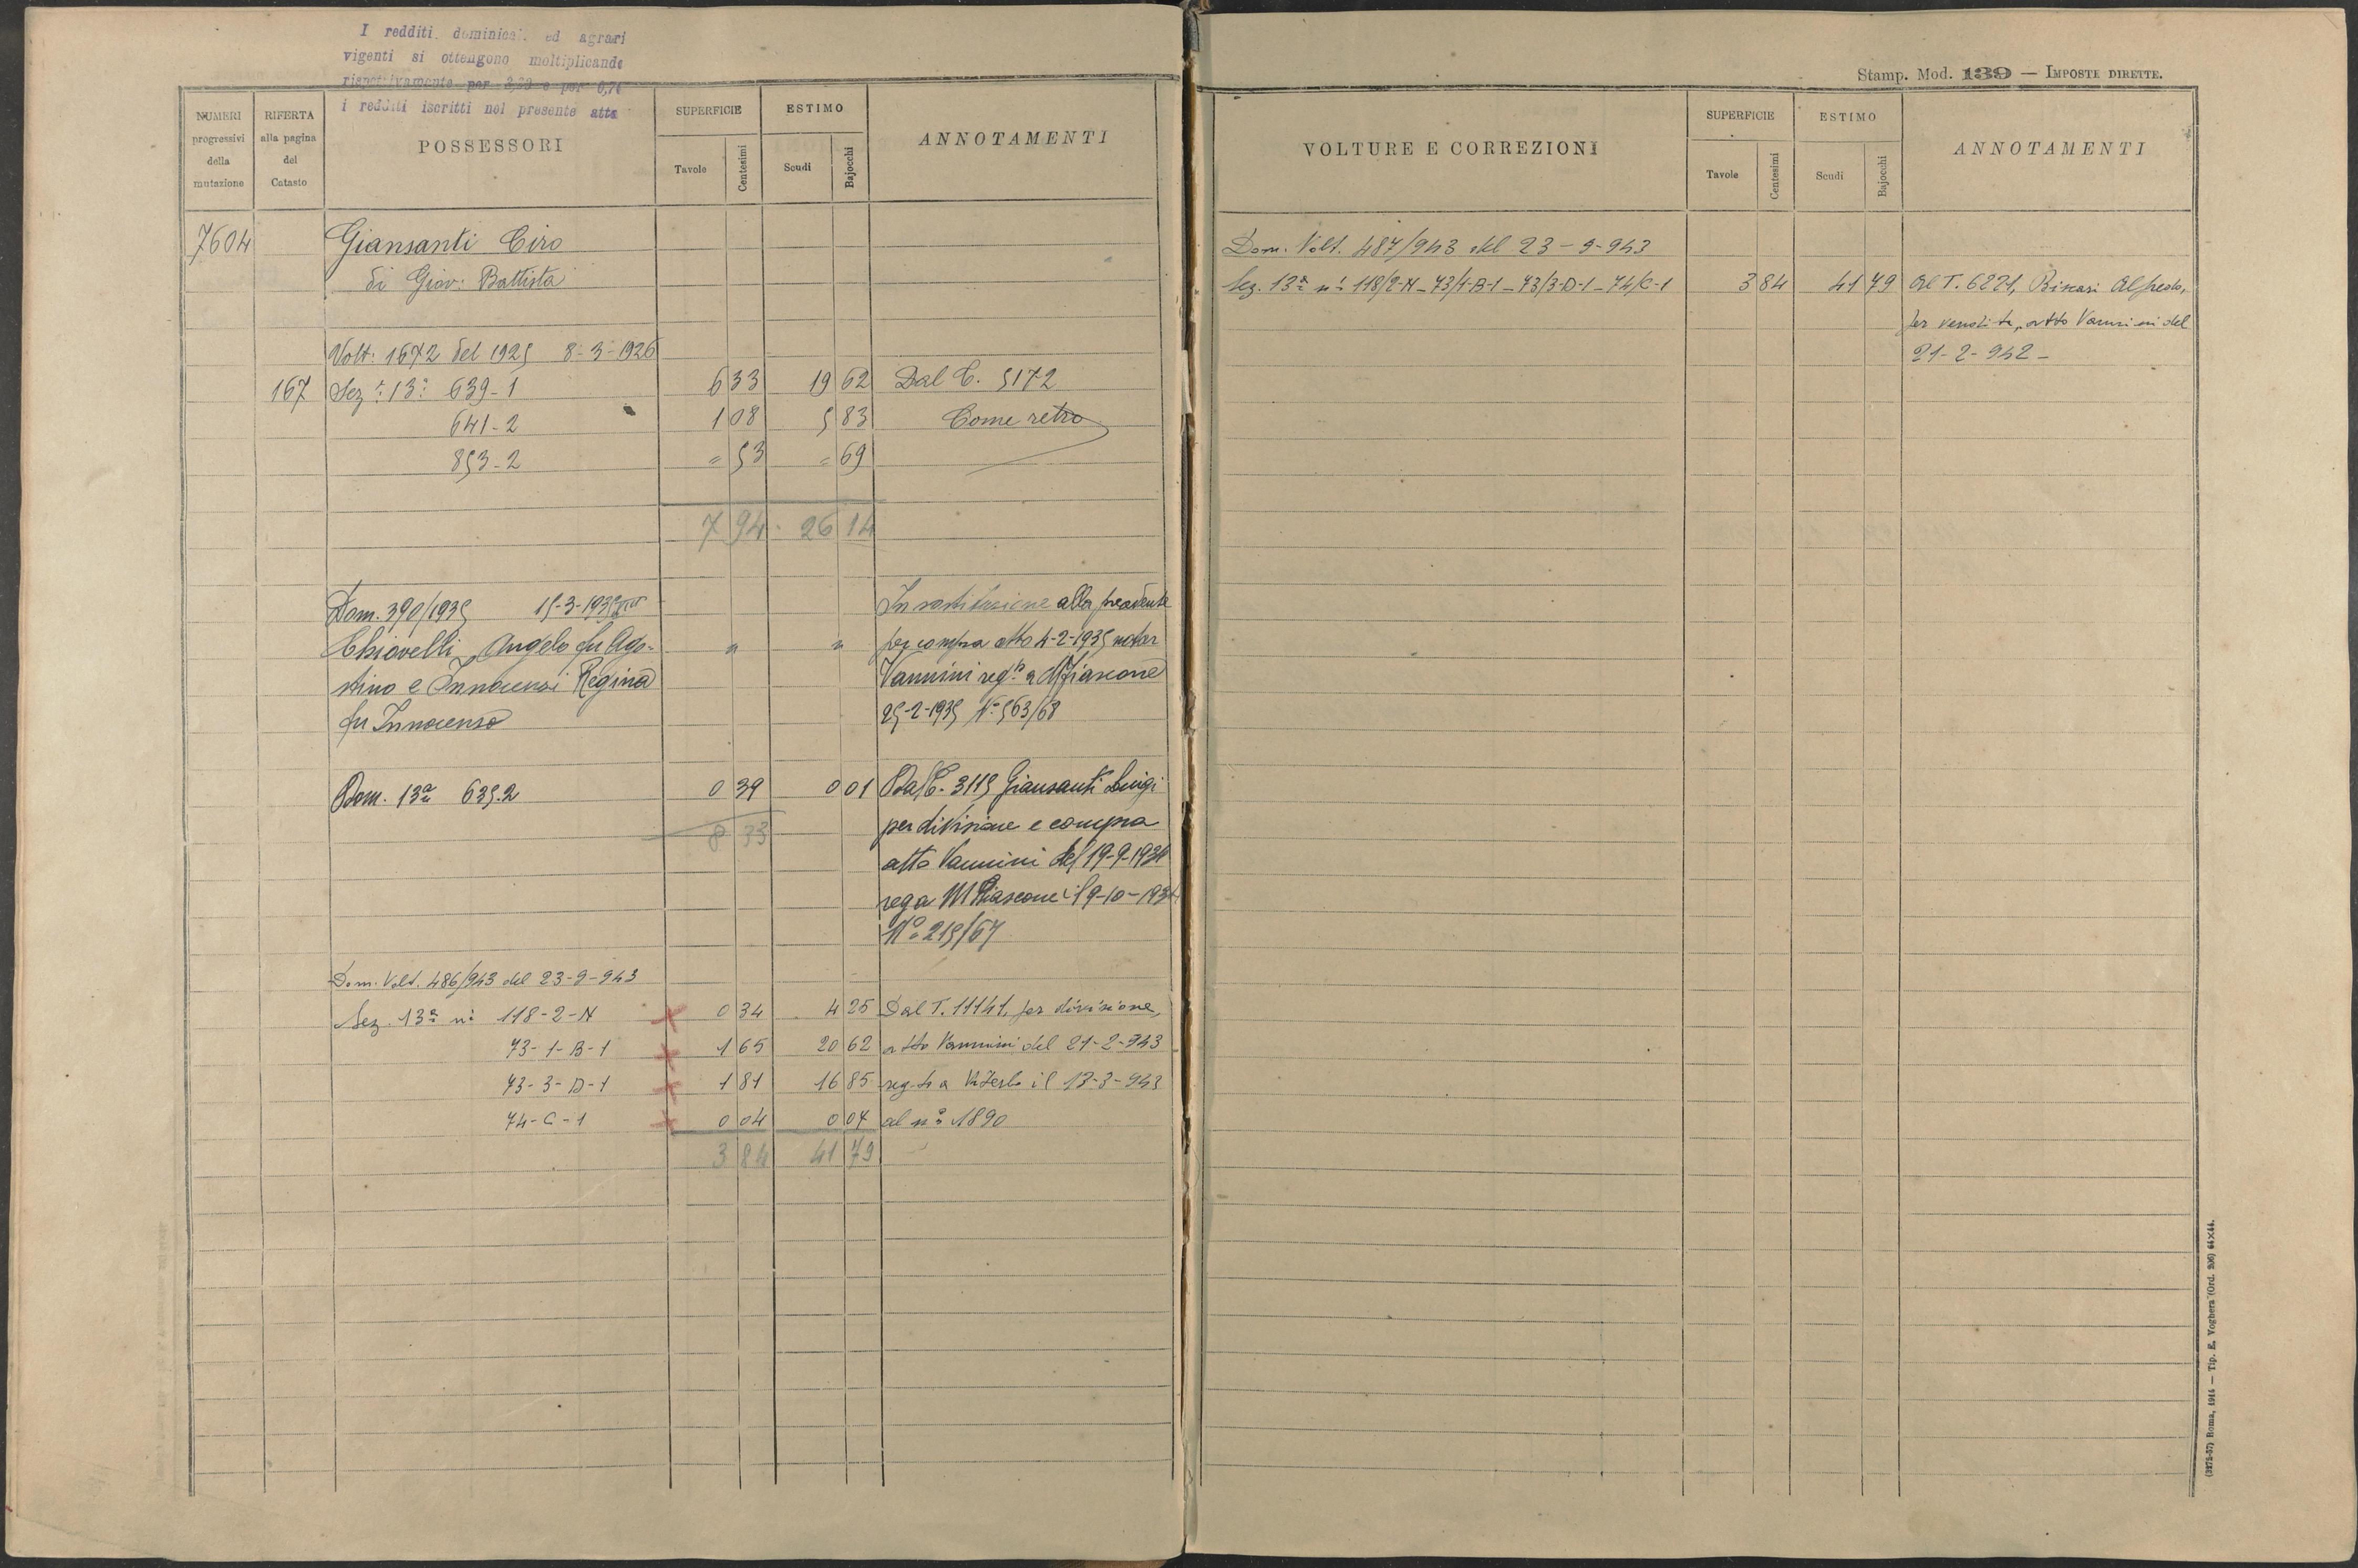 I redditi dominicali ed agrari
vigenti si ottengono moltiplicando
rispettivamente per e per
i redditi iscritti nel presente atto
NUMERI progressivi della mutazione
RIFERTA alla pagina del Catasto
POSSESSORI
SUPERFICIE
Tavole Centesimi
ESTIMO
Scudi Bajocchi
ANNOTAMENTI
7604 Giansanti Ciro
di Giov: Battista
Volt: 1672 del 1925 8-3-1926
167 Sez: 13a 639-1 6 33 19 62 Dal C. 5172
641-2 1 08 5 83 Come retro
853-2 = 53 = 69
7 94 26 14
Dom. 390/1935 15-3-1935 XIII In sostituzione alla precedente
Chiovelli Angelo fu Ago- " " per compra atto 4-2-1935 notar
stino e Innocenzi Regina Vannini reg.to a Mfiascone
fu Innocenzo 25-2-1935 N° 563/68
Dom. 13a 635.2 0 39 0 01 Dal C. 3115 Giansanti Luigi
8 33 per divisione e compra
atto Vannini del 19-9-1934
reg a M Fiascone il 9-10-1934
N° 215/67
Dom. Volt. 486/943 del 23-9-943
Sez. 13a n° 118-2-N 0 34 4 25 Dal T. 11141, per divisione,
73-1-B-1 1 65 20 62 atto Vannini del 21-2-943
73-3-D-1 1 81 16 85 reg-to a Viterbo il 13-3-943
74-C-1 0 04 0 07 al n° 1890
3 84 41 79
Stamp. Mod. 139 — IMPOSTE DIRETTE.
VOLTURE E CORREZIONI
SUPERFICIE
Tavole Centesimi
ESTIMO
Scudi Bajocchi
ANNOTAMENTI
Dom. Volt. 487/943 del 23-9-943
Sez. 13a n° 118/2-N-73/1-B-1-73/3-D-1-74/C-1 3 84 41 79 Al T. 6221, Alfredo,
per vendita, atto Vannini del
21-2-942-
(3172-57) Roma, 1914 — Tip. E. Voghera (Ord. 206) 64×44.